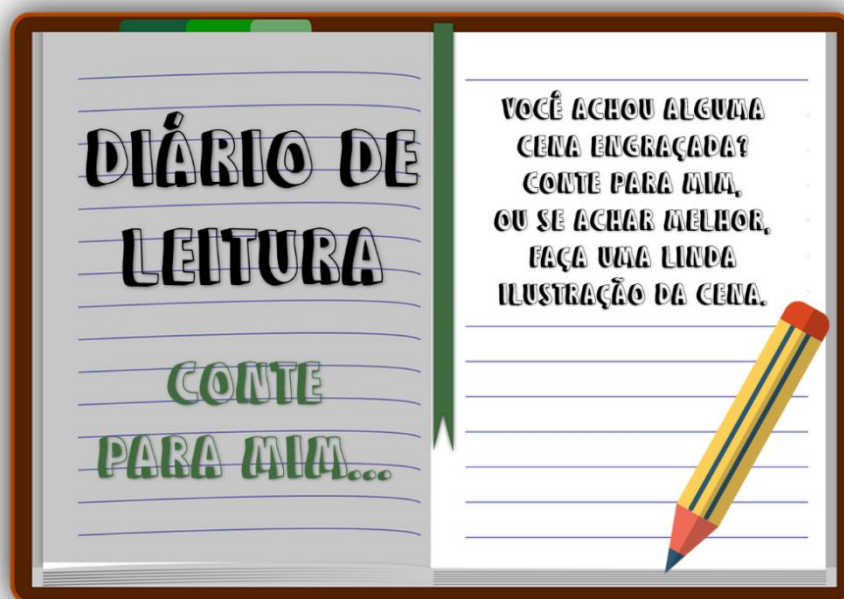 DIÁRIO DE
LEITURA
CONTE
PARA MIM...
VOCÊ ACHOU ALGUMA
CENA ENGRAÇADA?
CONTE PARA MIM,
OU SE ACHAR MELHOR,
FAÇA UMA LINDA
ILUSTRAÇÃO DA CENA.